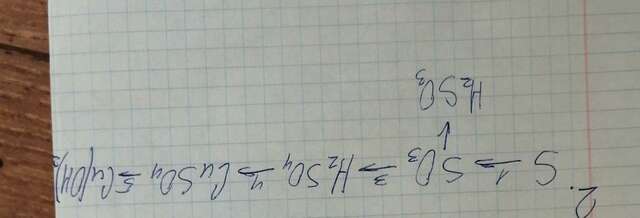 2.
S →1 SO₃ →3 H₂SO₄ →4 CuSO₄ →5 Cu(OH)₂
↓
H₂SO₃